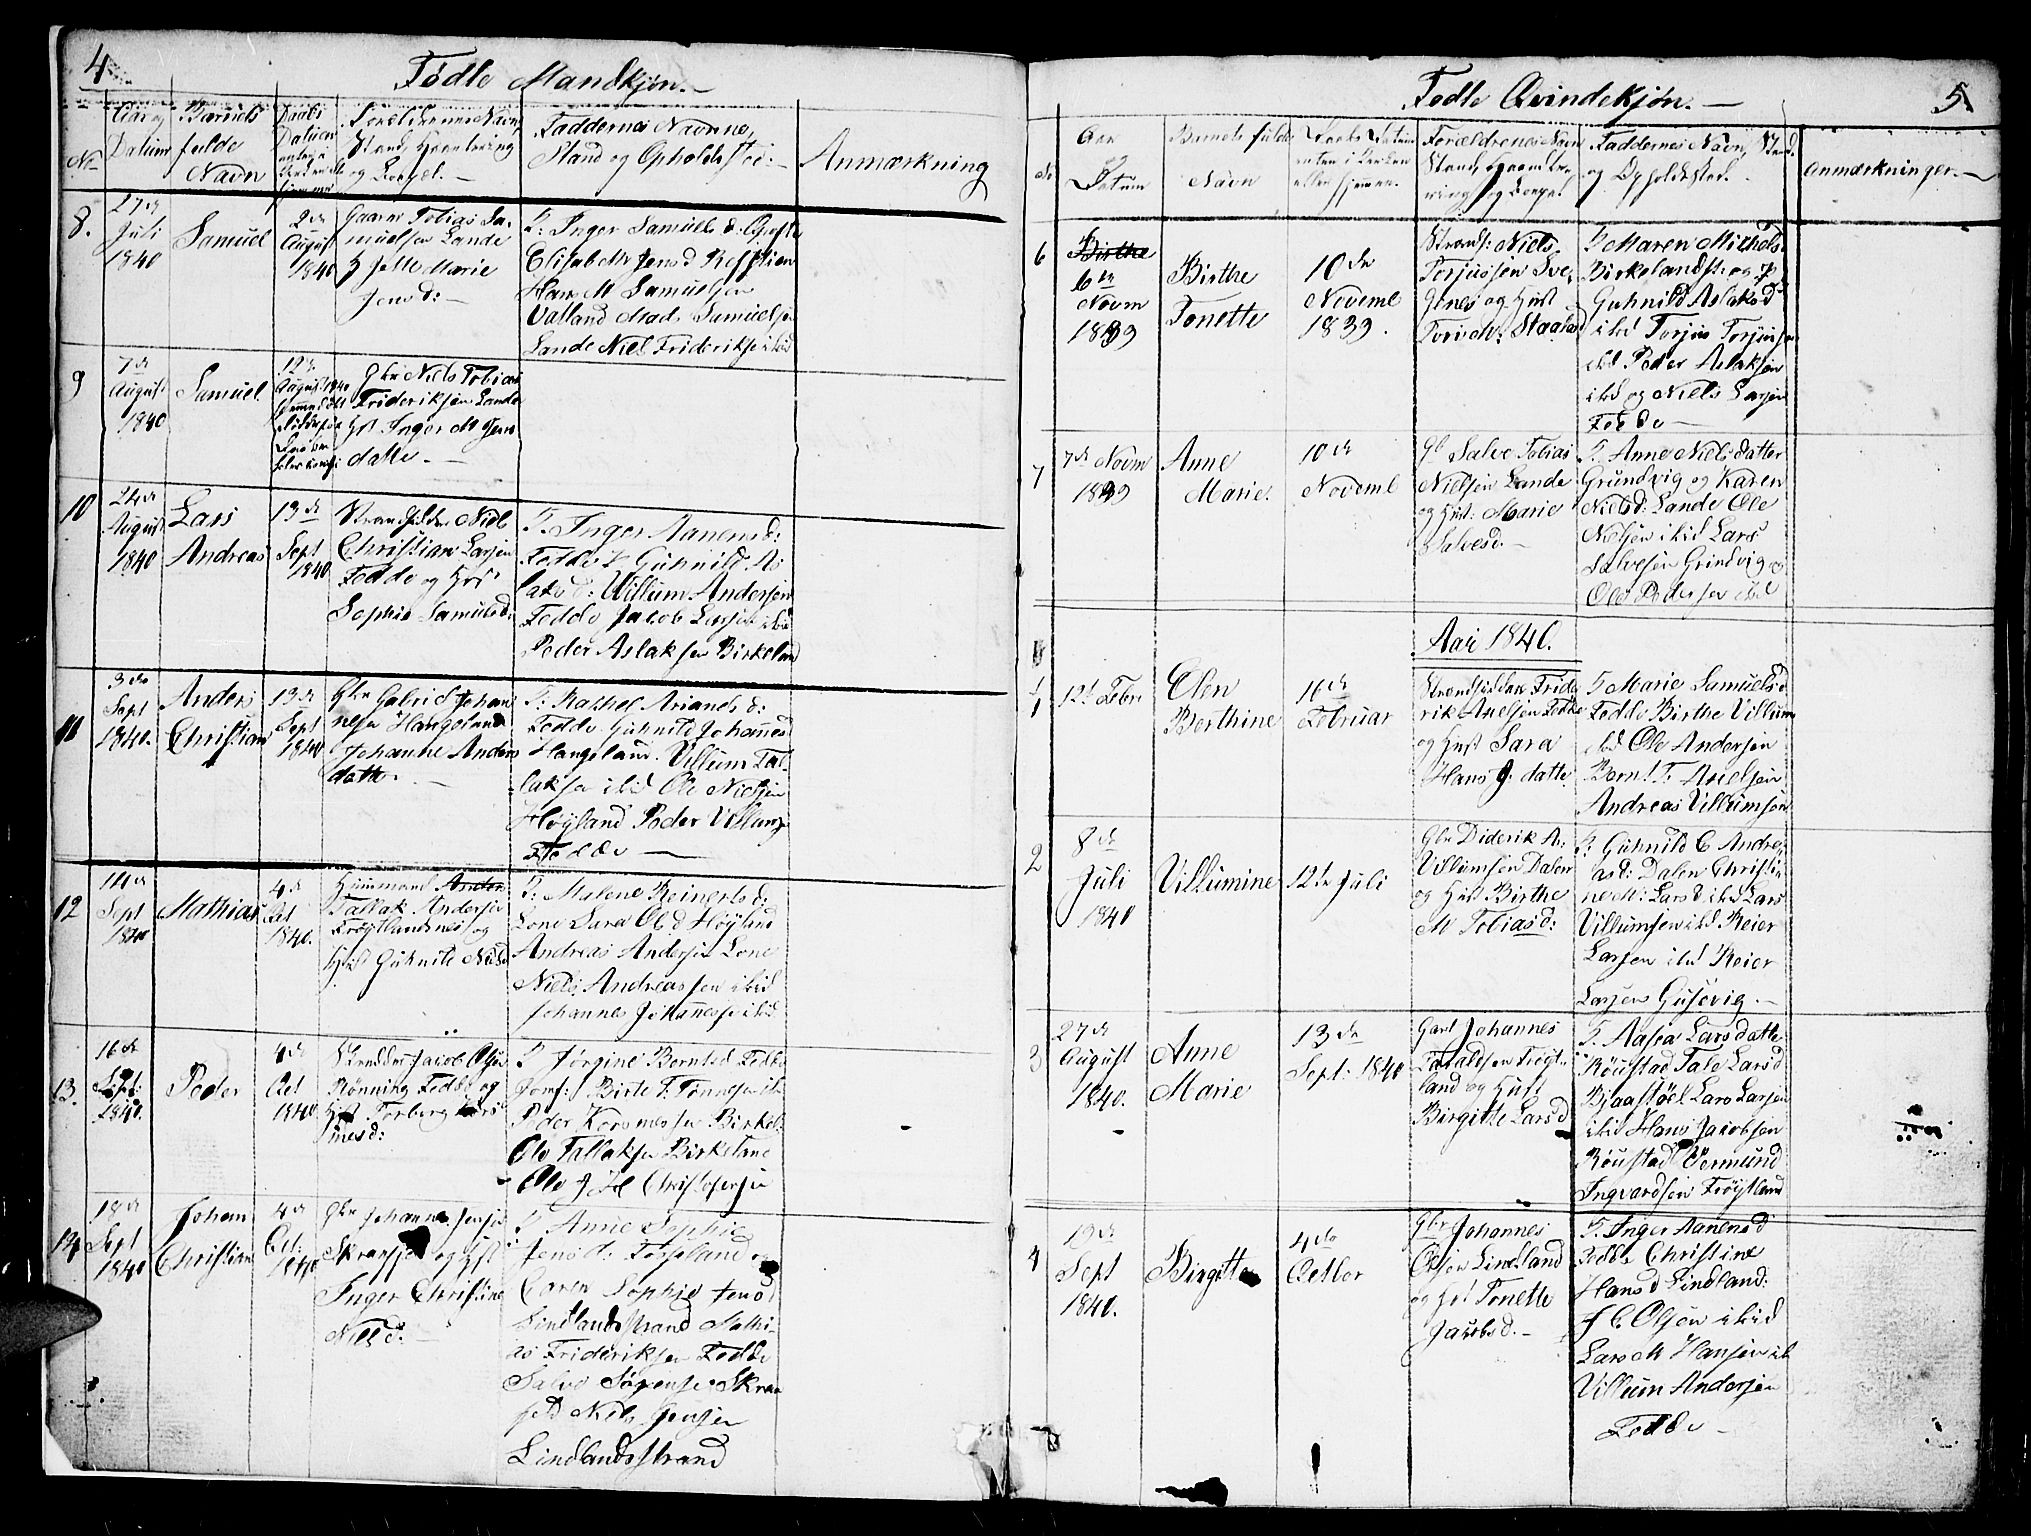 4
Fødte Mandkjøn.
No
Aar og Datum
Barnets fulde Navn
Daabs Datum
Forældrenes Navn, Stand, Haandtering og Bopæl.
Faddernes Navne, Stand og Opholdssted:
Anmærkning
8.
27de Juli 1840
Samuel
2de August 1840
Gaarm Tobias Samuelsen Lande
Jelle Marie
Jensd:
F: Inger Samuelsd:
Elisabeth Jensd
Hans M Samuelsen
Valland Mads Samuelsen
Lande Niel Frideriksen ibid
9
7de August 1840
Samuel
12te August 1840
Gbr Niels Tobias
Frideriksen Lande
Hst Inger M Jens
datte. —
10
24de August 1840
Lars Andreas
13de Sept 1840
Strandsidder Niels
Christian Larsen
Fedde og Hst
Sophie Samuelsd:
F. Inger Aanensd:
Fedde F Guhnild As
laksd: Willum Andersen
Fedde Jacob Larsen ibid
Peder Aslaksen Birkeland
11
3die Sept 1840.
Anders Christian
13de Sept 1840
Gbr Gabriel Johan
nesen Hangeland
Johanne Anders
datte.
F: Rachel Arianesd:
Fedde Guhnild Johannesd
Hangeland. Villum Tal-
laksen ibid Ole Nielsen
Høyland Peder Villums
Fedde —
12
14de Sept 1840
Mathias
4de Oct 1840.
Huusmand
Tallak Andersen
Frøytlandsnes og
Hst Guhnild Nielsd
F: Malene Reinertsd:
Lone Sara Olsd Høyland
Andreas Andersen Lone
Niels Andreassen ibid
Johannes Johannesen ibid
13.
16de Sept: 1840.
Peder
4de Oct 1840
Skredder Jacob Olsen
Rønning Fedde og
Hst Torberg
F Jørgine Berntsd Fedde
Jomf: Birte T. Tønnesen ib
Peder Kornesen Birkel:
Ole Tallaksen Birkeland
Ole J H Christofersen
14
18de Sept 1840
Johan Christian
4de Oct: 1840
Gbr Johannes Jensen
og Hst
Inger Christine
Nielsd. —
F Anne Sophie
Jensd og
Caren Sophie Jensd
Lindlandsstrand Mathi-
as Frideriksen Fedde
Salve Sørensen
Niels Jensen
Lindlandsstrand
Fødte Qvindekjøn. —
5.
No
Aar Datum
Barnets fulde Navn
Daabs Datum enten i Kirken eller hjemme.
Forældrenes Navn Stand, Haandtering og Bopæl.
Faddernes Navn, Stand og Opholdssted.
Anmærkninger. —
6
Birthe
6te Novm 1839
Birthe Tonette
10de Noveml 1839.
Strands: Niels
Torjussen Sve-
genes og Hust
Tori M: Staalesd
F Maren Michelsd
Birkelandst: og
Guhnild Aslaksd
ibid Torjus Torjusen
ibid Peder Aslaksen
ibid og Niels Larsen
Fedde —
7
7de Novm 1839
Anne Marie.
10de Noveml
Gb Salve Tobias
Nielsen Lande
og Hust: Marie
Salvesd. —
F. Anne Nielsdatter
Grundvig og Karen
Nielsd: Lande Ole
Nielsen ibid Lars
Salvesen Grindvig og
Ole Pedersen ibid
Aar 1840.
1
12te Febr
Olen Berthine
16de Februar
Strandsidder Fride
rik Axelsen Fedde
og Hust Sara
Hans J: datte
F Marie Samuelsd
Fedde Birthe Villums
ibid Ole Andersen
Bernt T. Axelsen
Andreas Villumsen
2
8de Juli 1840
Villumine
12te Juli
Gbr Diderik A:
Villumsen Dalen
og Hust Birthe
M Tobiasd:
F: Guhnild C Andre-
asd: Dalen Christi-
ne M: Larsd ibid Lars
Villumsen ibid Reier
Larsen ibid Reier
Larsen Gusevig. —
3
27de August 1840.
Anne Marie
13de Sept: 1840
Gaard Johannes
Frøyt-
land og Hust
Birgitte Larsd
F. Aasea Larsdatte
Røiestad Tale Larsd
Lars Larsen
ibid Hans Jacobsen
Røiestad Vermund
Ingvardsen Frøytland
4
19de Sept 1840.
Birgitte
4de Octbr
Gbr Johannes
Olsen Lindland
og Hst Tonette
Jacobsd. —
F. Inger Aanensd
Fedde Christine
Hansd Lindland:
J C. Olsen ibid
Lars M Hansen ib
Villum Andersen
Fedde —